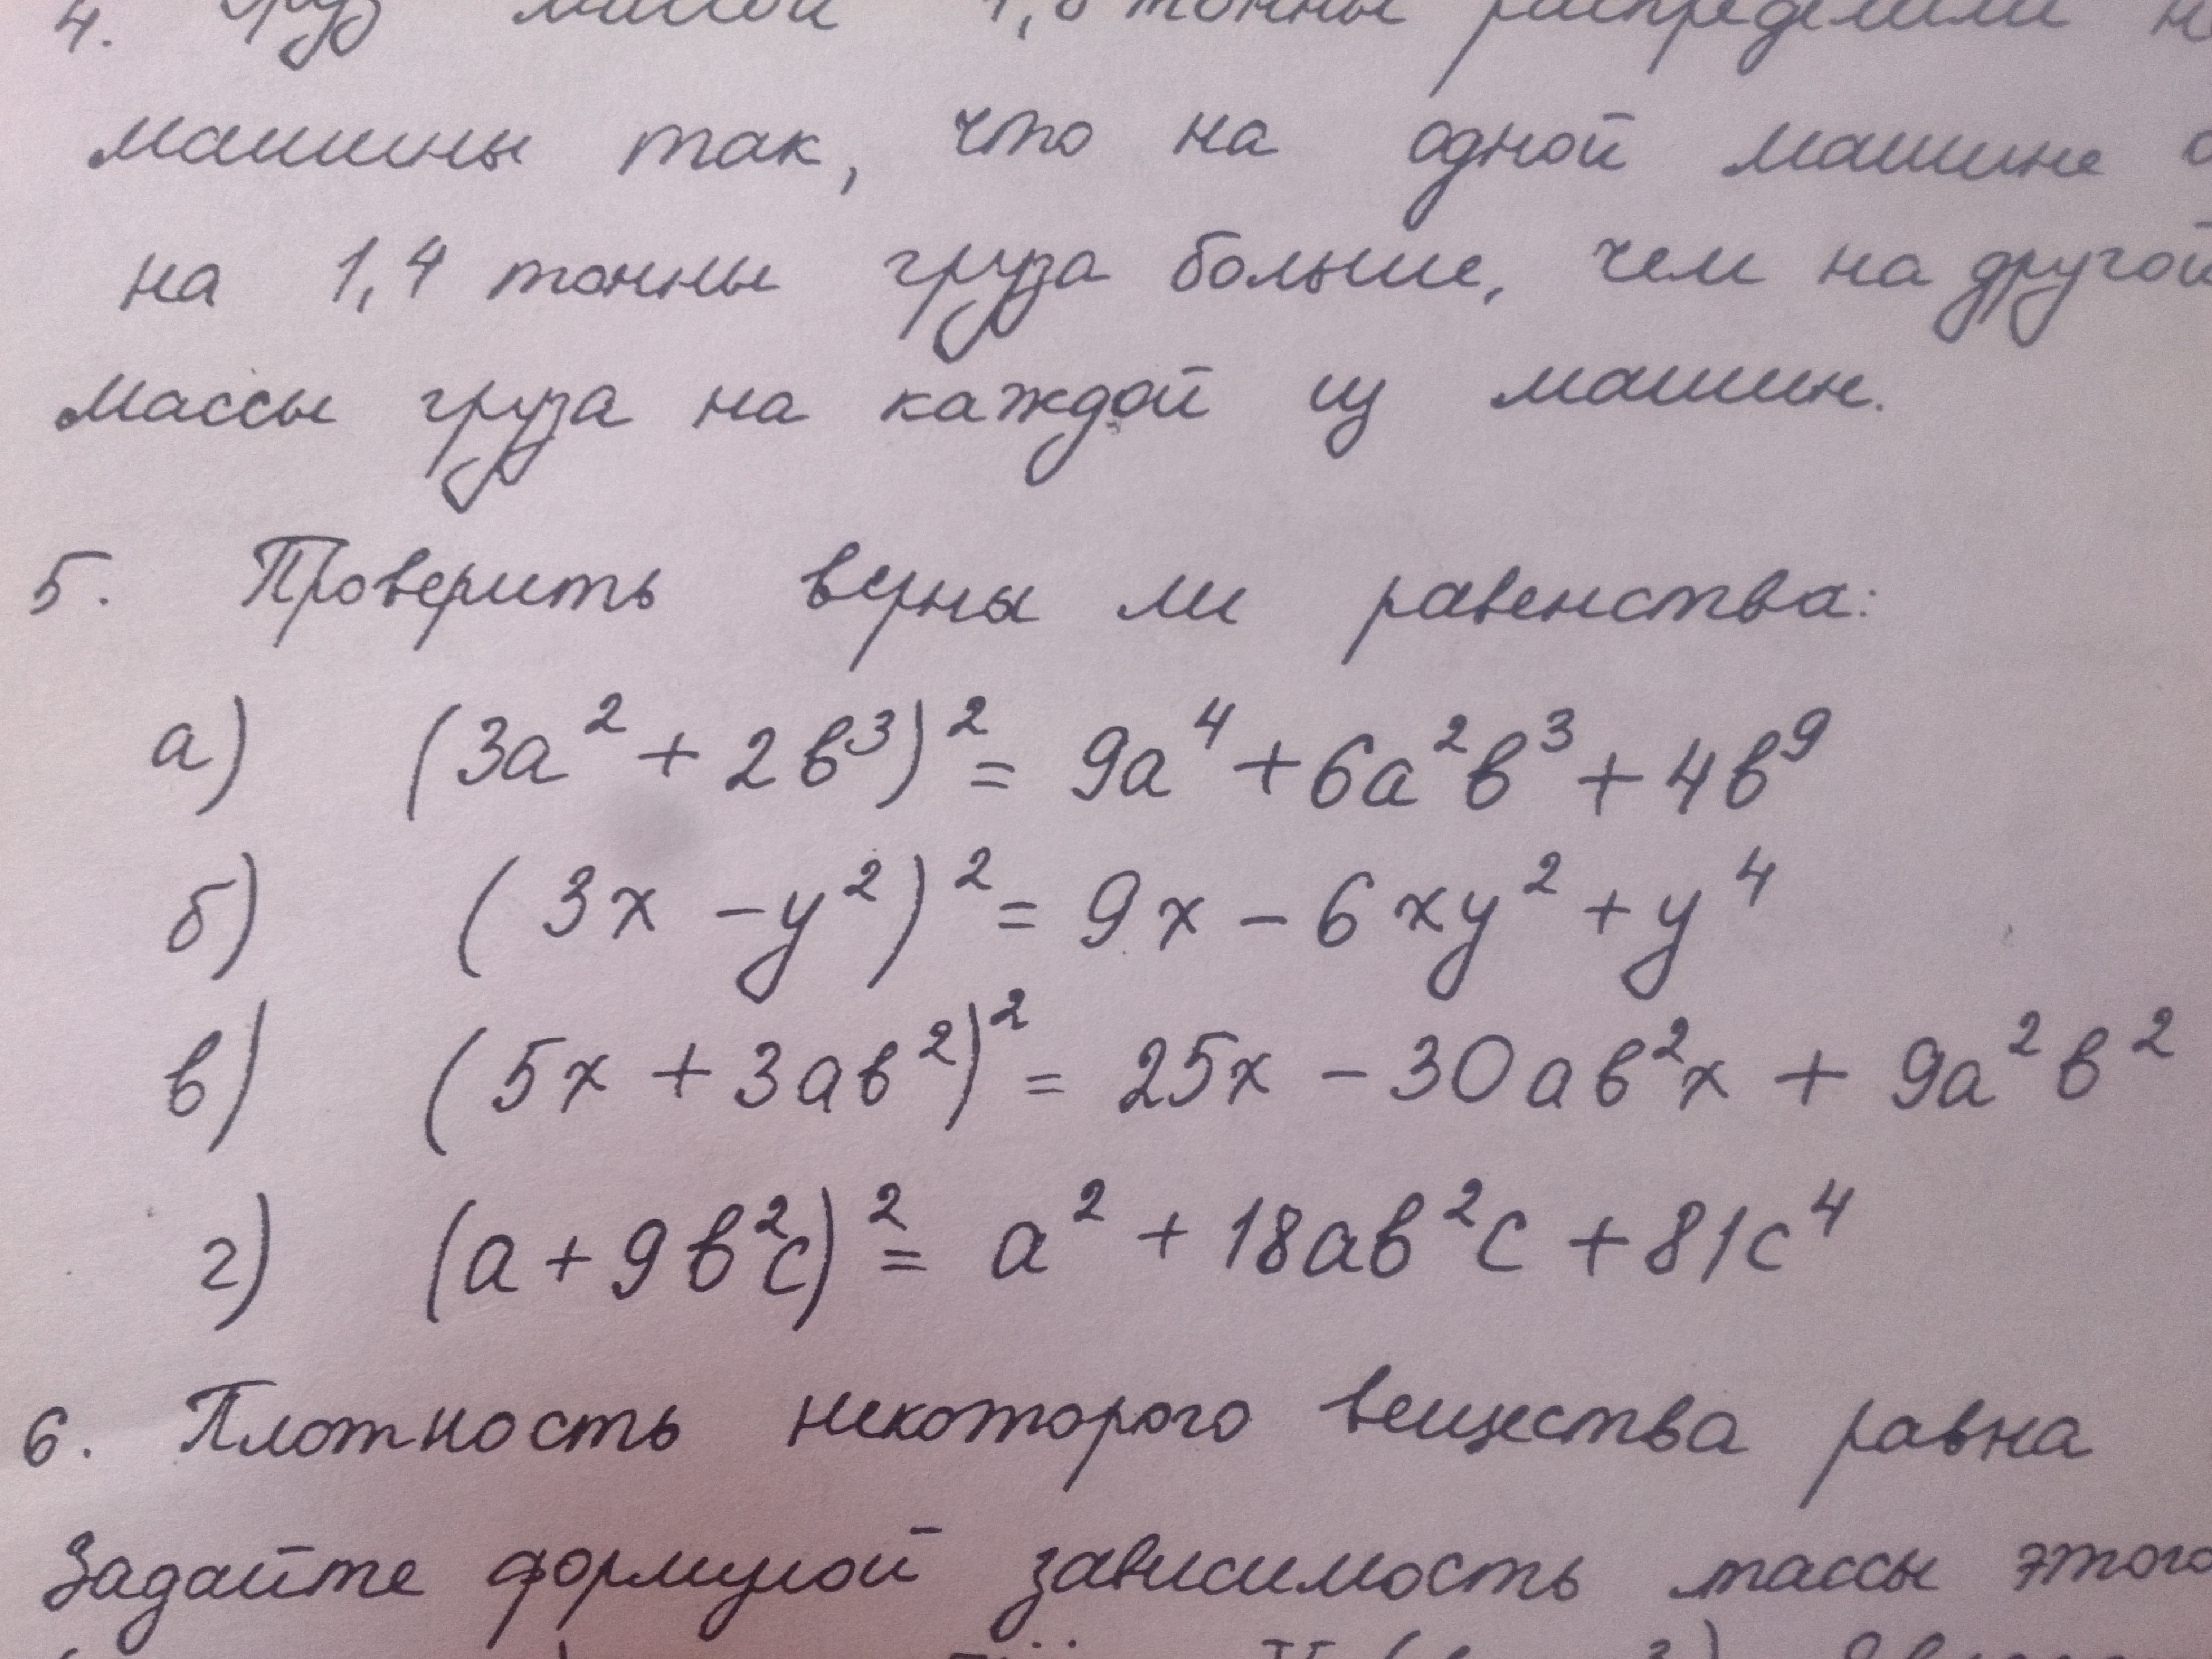 4. Груз массой 1,8 тонны распределили
машины так, что на одной машине
на 1,4 тонны груза больше, чем на другой
массы груза на каждой из машин.
5. Проверить верны ли равенства:
а) (3a² + 2b³)² = 9a⁴ + 6a²b³ + 4b⁹
б) (3x − y²)² = 9x − 6xy² + y⁴
в) (5x + 3ab²)² = 25x − 30ab²x + 9a²b²
г) (a + 9b²c)² = a² + 18ab²c + 81c⁴
6. Плотность некоторого вещества равна
Задайте формулой зависимость массы этого